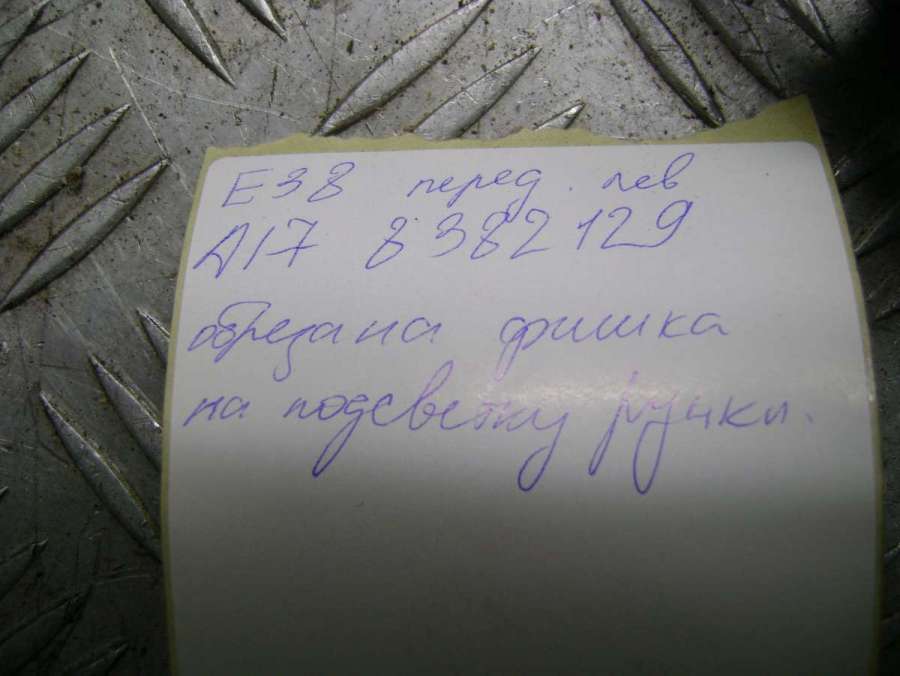 E38 перед. лев
А17 8382129
обрезана фишка
на подсветку ручки.